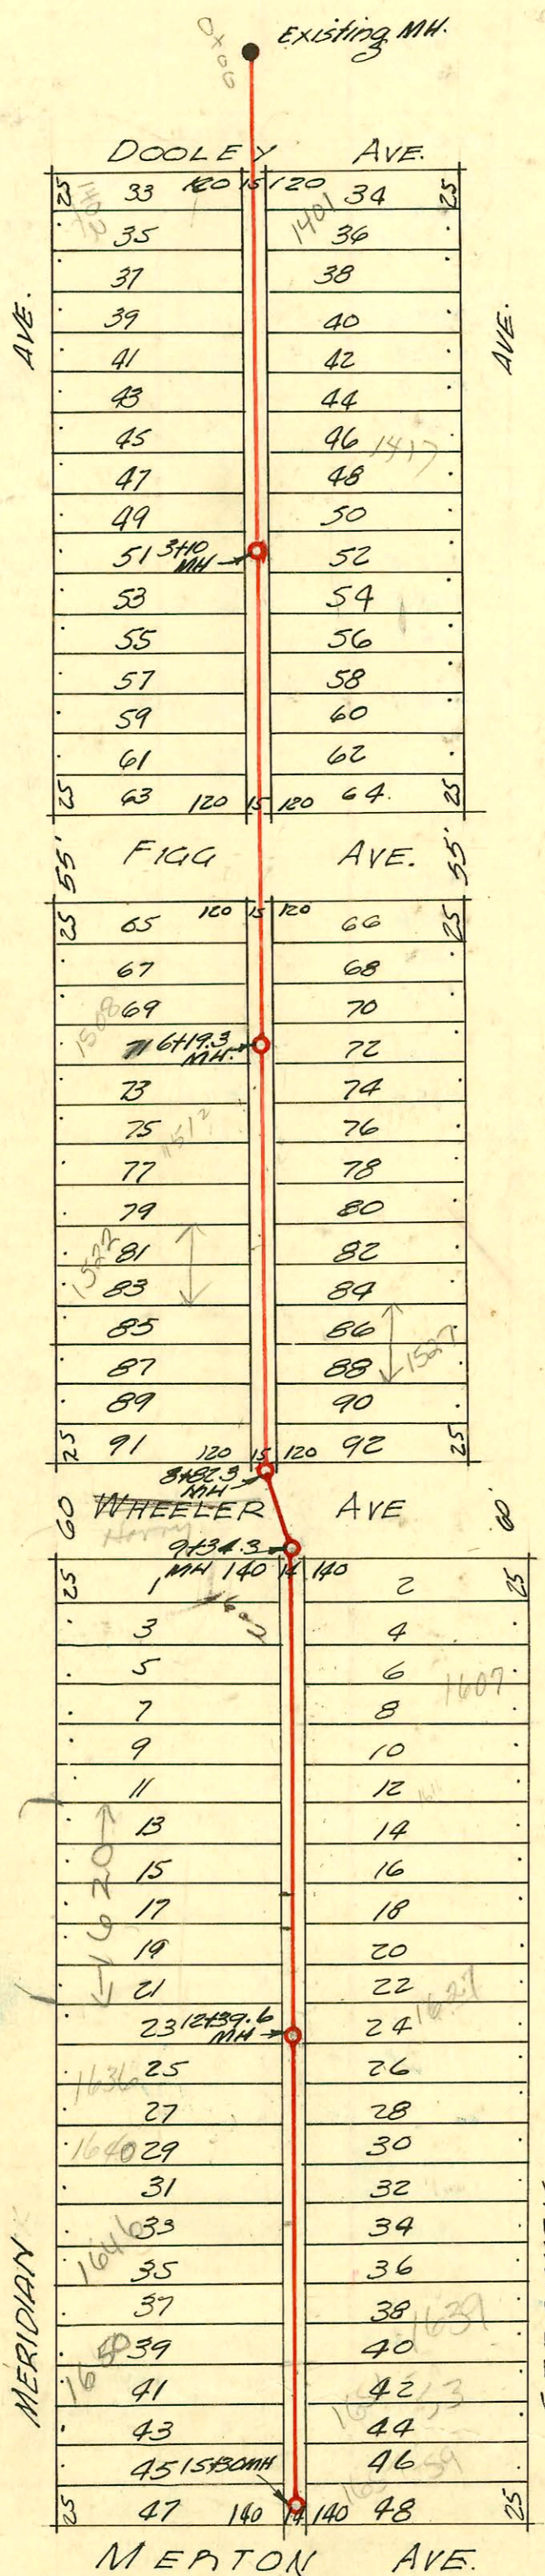 Existing MH.
0+00
DOOLEY AVE.
25 33 120 15 120 34 25
1402 1401
35 36
37 38
AVE. AVE.
39 40
41 42
43 44
45 46 1417
47 48
49 50
51 3+10 MH 52
53 54
55 56
57 58
59 60
61 62
25 63 120 15 120 64 25
55' FIGG AVE. 55'
25 65 120 15 120 66 25
67 68
1508 69 70
71 6+19.3 MH. 72
73 74
75 1512 76
77 78
79 80
1522 81 82
83 84
85 86
87 88 1527
89 90
25 91 120 15 120 92 25
8+82.3 MH
60 WHEELER AVE 60'
Harry
9+34.3 MH
25 1 140 14 140 2 25
3 4
5 6
1607
7 8
9 10
11 12
13 14
1620
15 16
17 18
19 20
21 22
1627
23 12+39.6 MH 24
1636 25 26
27 28
1640 29 30
31 32
33 34
1646
35 36
37 38 1639
1650 39 40
41 42
43 44
45 15+30 MH 46
25 47 140 14 140 48 25
MERIDIAN
MERTON AVE.